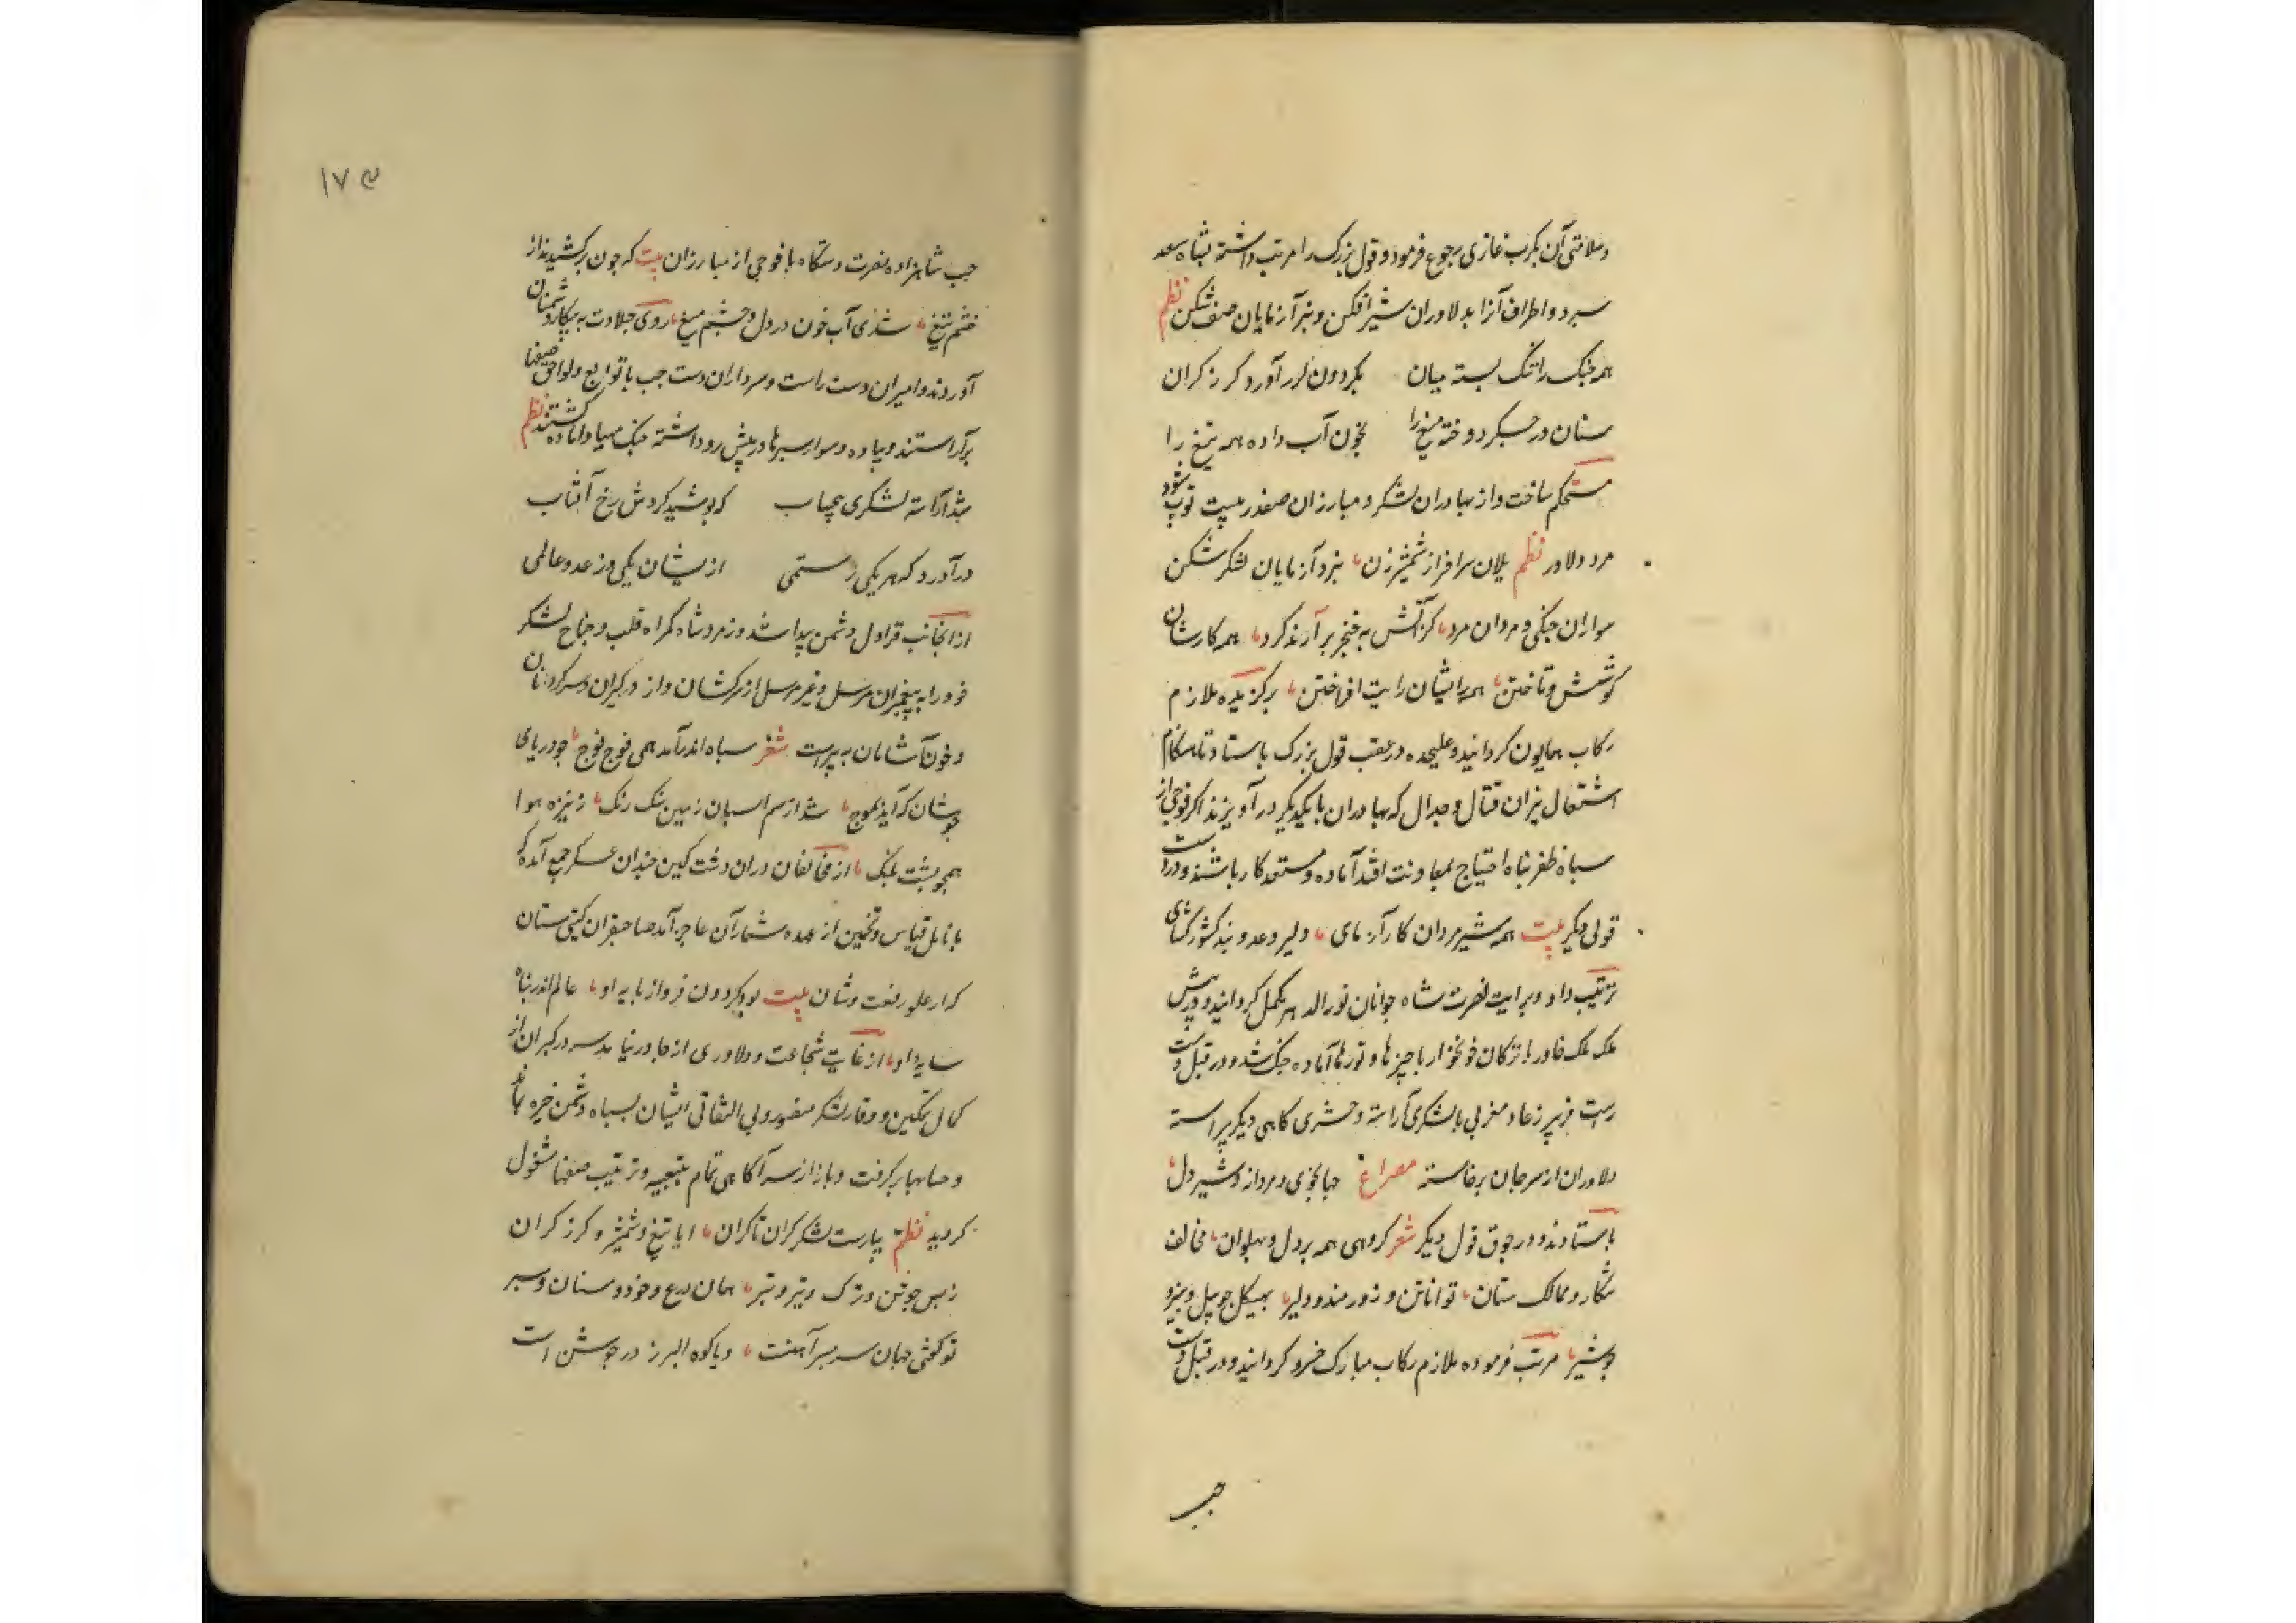 وسلامتی آن بکرب غازی رجوع فرمود و قول بزرک را مرتب داشته بشاه سعد
سبرد و اطراف آنرا بدلاوران شیرافکن و نبرد آزمایان صف شکن نظم
همه جنک را تنک بسته میان بکردون لزر آورد کرز کران
سنان در جکر دوخته میغ را بخون آب داده همه تیغ را
مستحکم ساخت و از بهادران لشکر و مبارزان صفدر بیست توب شود
مرد دلاور نظم یلان سرافراز شمشیرزن نبرد آزمایان لشکر شکن
سواران جنکی و مردان مرد کز آتش به خنجر بر آرند کرد همه کارشان
کوشش و تاختن همه رایشان رایت افراختن برکزیده ملازم
رکاب همایون کردانید و علیحده در عقب قول بزرک باستاد تا هنکام
اشتعال نیران قتال و جدال که بهادران با یکدیکر در آویزند اکر فوجی از
سباه ظفر بناه احتیاج بمعاونت افتد آماده و مستعد کار باشند و در دست
قولی دیکر بیت همه شیرمردان کار آزمای دلیر و عدو بند کشور کشای
ترتیب داد و برایت نصرت شاه جوانان نورالدهر مکمل کردانید و در پیش
ملک ملک خاور با ترکان خونخوار با چیزها و تورها آماده جنک شد و در قبل دست
راست فریبرز عاد مغربی با لشکری آراسته و حشری کاهی دیکر پیراسته
دلاوران از سر جان برخاسته مصراع جهانجوی و مردانه و شیردل
باستادند و در جوق قول دیکر شعر کروهی همه بردل و پهلوان مخالف
شکار و ممالک ستان توانا تن و زورمند و دلیر بهیکل چو پیل و بنیرو
چو شیر مرتب فرموده ملازم رکاب مبارک خسرو کردانید و در قبل دست
جب
۱۷۳
جب شاهزاده نصرت دستکاه با فوجی از مبارزان بیت که جون برکشیدند از
خشم تیغ شدی آب خون در دل و چشم میغ روی جلادت به پیکار دشمنان
آوردند و امیران دست راست و سرداران دست جب با توابع و لواحق صفها
برآراستند و پیاده و سوار سبرها در پیش رو داشته جنک مهیا و آماده کشتند نظم
بشد آراسته لشکری بیحساب که پوشید کردش رخ آفتاب
درآورد که هر یکی رستمی از یشان یکی وز عدو عالمی
از انجانب قراول دشمن پیدا شد و زمرد شاه کمراه قلب و جناح لشکر
خود را به پیغمبران مرسل و غیر مرسل از سرکشان و از درکیران و سرکردنان
و خون آشامان به پیراست شعر سباه اندر آمد همی فوج فوج جو دریای
جوشان که آید بموج شد از سم اسبان زمین سنک رنک ز نیزه هوا
همچو پشت پلنک از مخالفان دران دشت کین جندان عسکر جمع آمده که
بانامل قیاس و تخمین از عهده شمار آن عاجز آمد صاحبقران کیتی ستان
که از علو رفعت و شان بیت بود کردون فرو از پایه او عالم اندر بناه
سایه او از غایت شجاعت و دلاوری از جا درنیامد سه در کبران از
کمال تمکین و وقار لشکر منصور و بی التفاتی ایشان بسباه دشمن خیره بماند
و حسابها برکرفت و باز از سر آکاهی تمام بتعبیه و ترتیب صفها مشغول
کردید نظم بیاراست لشکر کران تا کران ایا تیغ و شمشیر و کرز کران
ز بس جوشن و ترک و تیر و تبر همان درع و خود و سنان و سبر
تو کفتی جهان سر بسر آهنست و یا کوه البرز در جوشن است